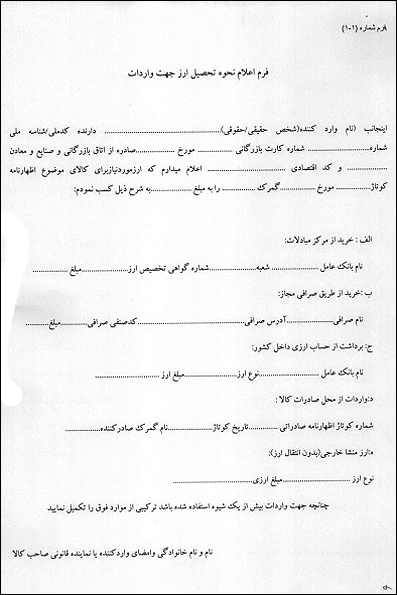 فرم شماره (۱-۱)
فرم اعلام نحوه تحصیل ارز جهت واردات
اینجانب (نام وارد کننده(شخص حقیقی/حقوقی)............................ دارنده کدملی/شناسه ملی
شماره.................... شماره کارت بازرگانی ............ مورخ ............صادره از اتاق بازرگانی و صنایع و معادن
............ و کد اقتصادی ........................ اعلام میدارم که ارزموردنیازبرای کالای موضوع اظهارنامه
کوتاژ............ مورخ ............گمرک ............ را به مبلغ ............به شرح ذیل کسب نمودم:
الف : خرید از مرکز مبادلات:
نام بانک عامل ................ شعبه................شماره گواهی تخصیص ارز................مبلغ ............
ب :خرید از طریق صرافی مجاز:
نام صرافی................آدرس صرافی ........................کدصنفی صرافی............مبلغ............
ج: برداشت از حساب ارزی داخل کشور:
نام بانک عامل ................نوع ارز ................مبلغ ارز ................
د:واردات از محل صادرات کالا :
شماره کوتاژ اظهارنامه صادراتی ............تاریخ کوتاژ............نام گمرک صادرکننده............
ه:ارز منشا خارجی(بدون انتقال ارز):
نوع ارز ................مبلغ ارزی........................
چنانچه جهت واردات بیش از یک شیوه استفاده شده باشد ترکیبی از موارد فوق را تکمیل نمایید
نام و نام خانوادگی وامضای واردکننده یا نماینده قانونی صاحب کالا